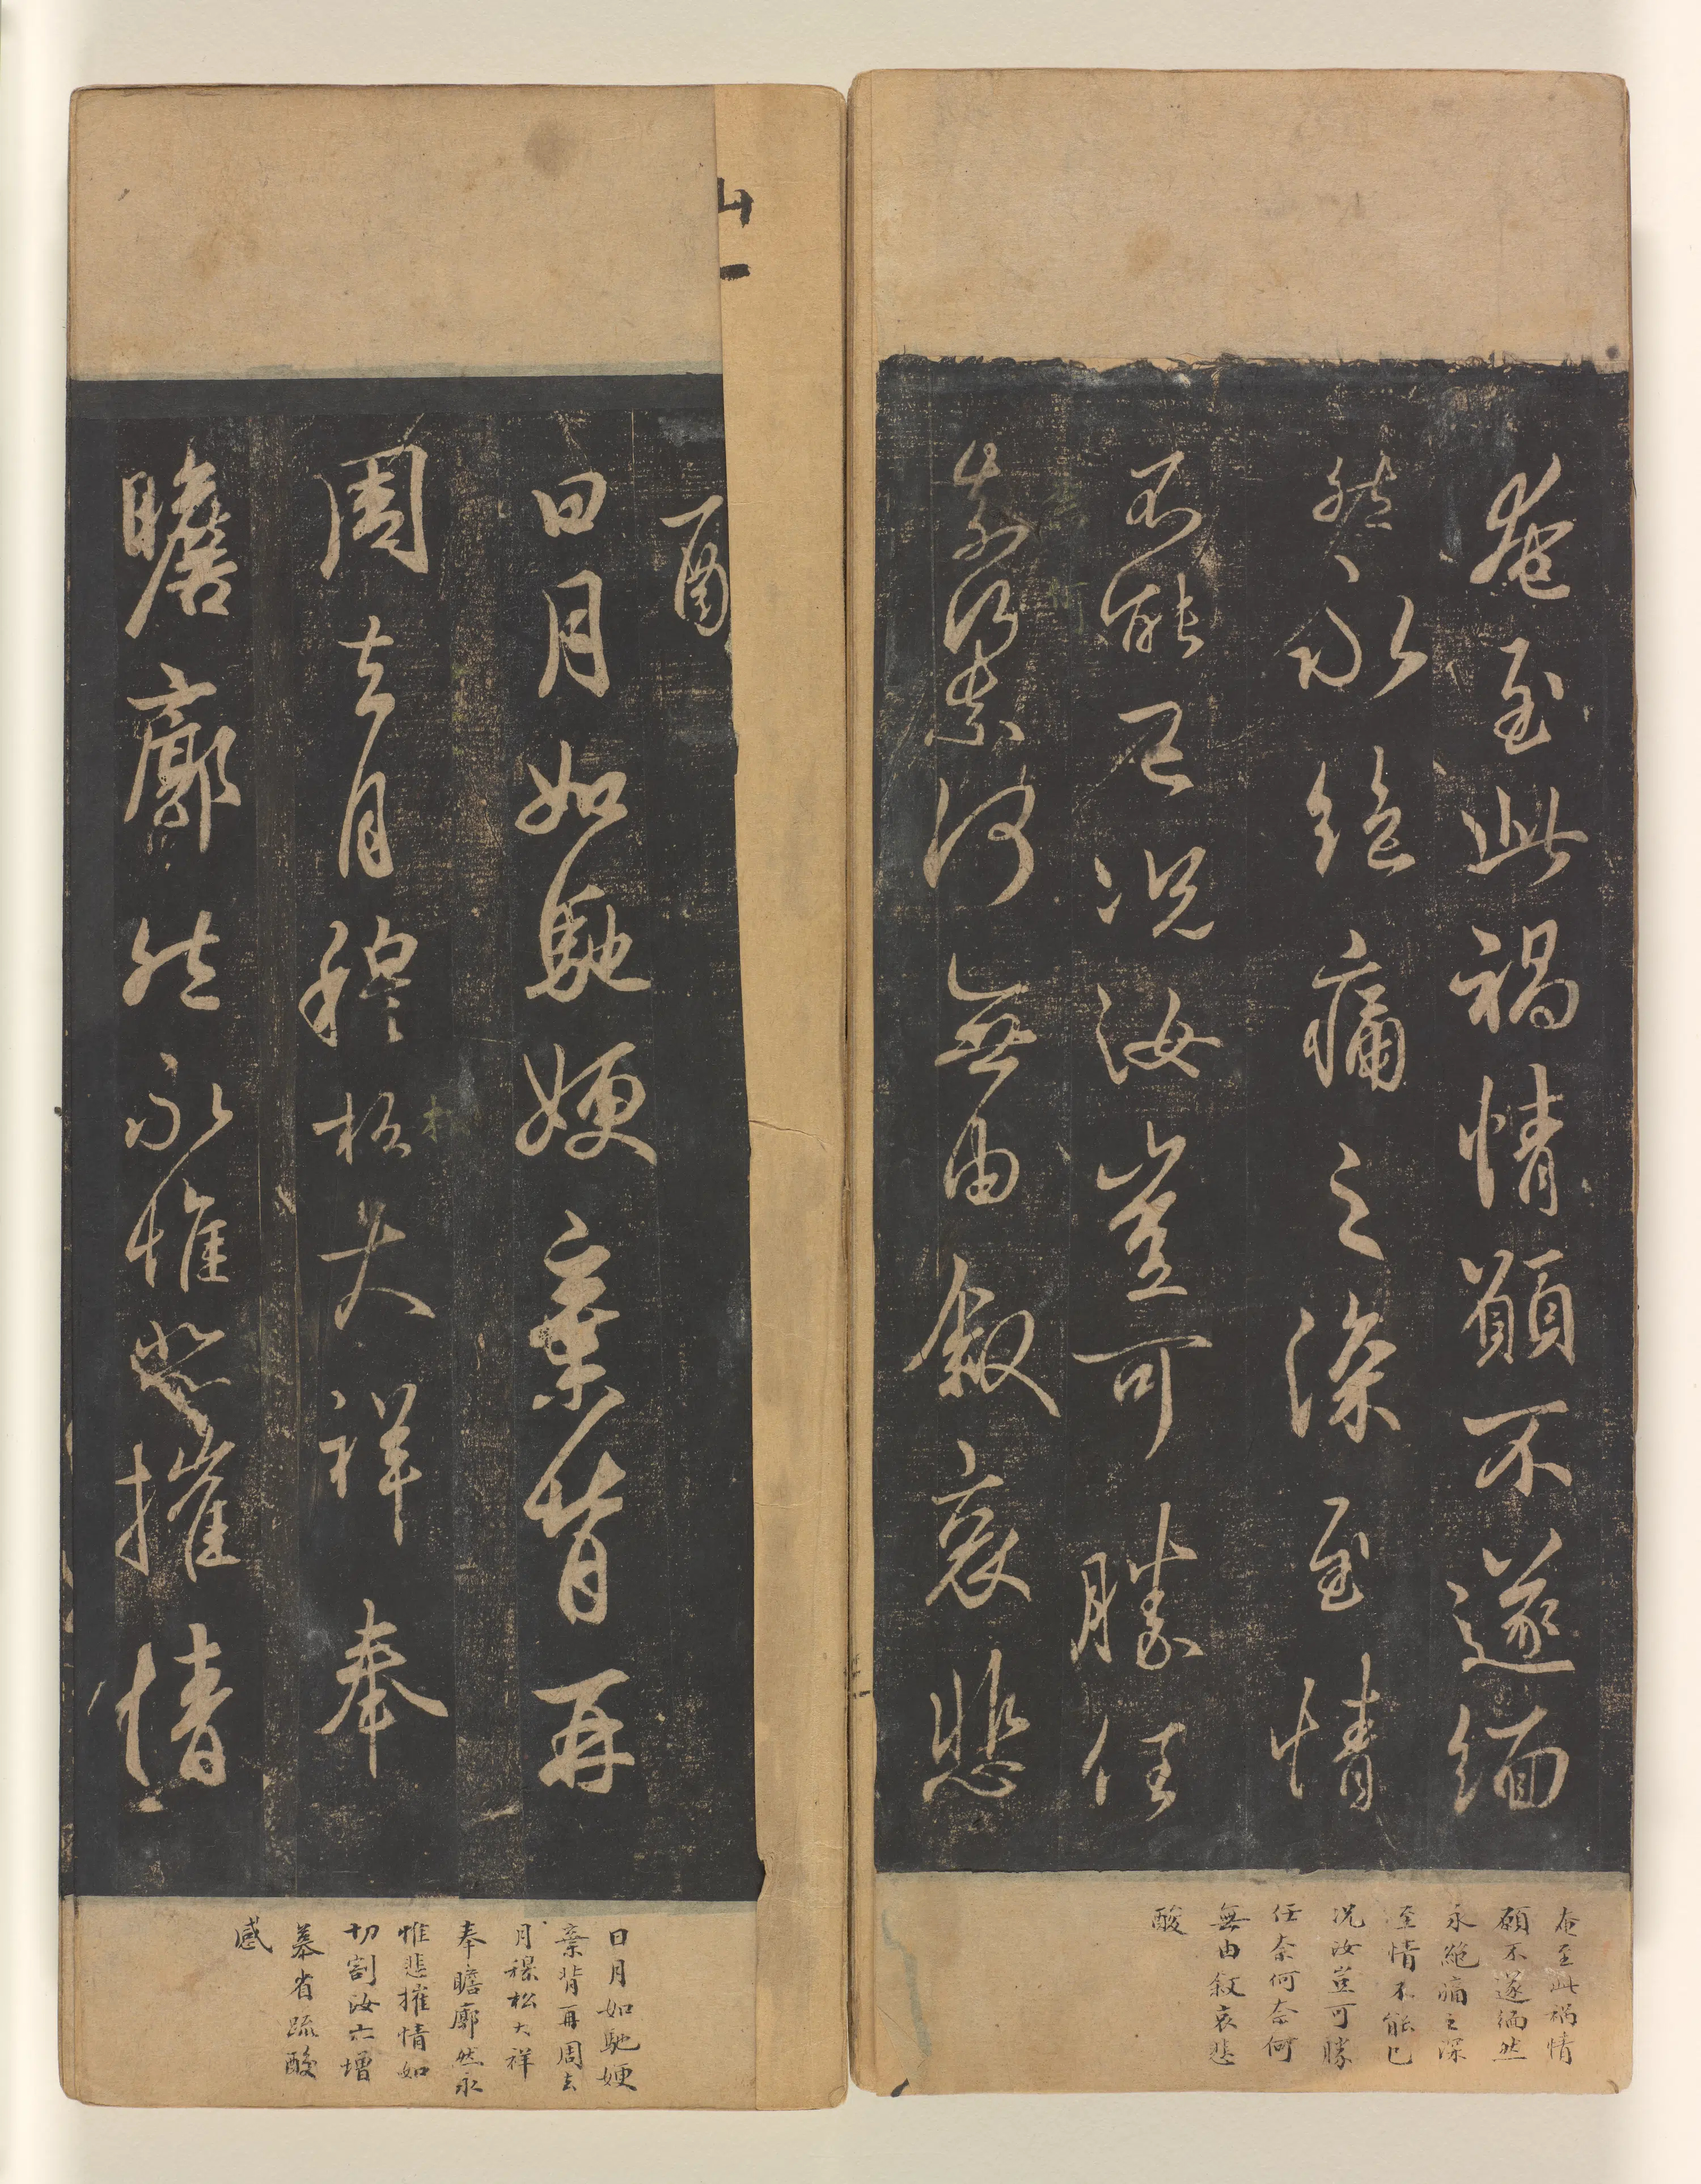 奄至此禍情願不遂緬
然永絕痛之深至情
不能已況汝豈可勝任
奈何奈何無由敘哀悲
酸
日月如馳嫂棄背再
周去月穆松大祥奉
瞻廓然永惟悲摧情
奄至此禍情
願不遂緬然
永絕痛之深
至情不能已
況汝豈可勝
任奈何奈何
無由敘哀悲
酸
日月如馳嫂
棄背再周去
月穆松大祥
奉瞻廓然永
惟悲摧情如
切割汝亦增
慕省疏酸
感